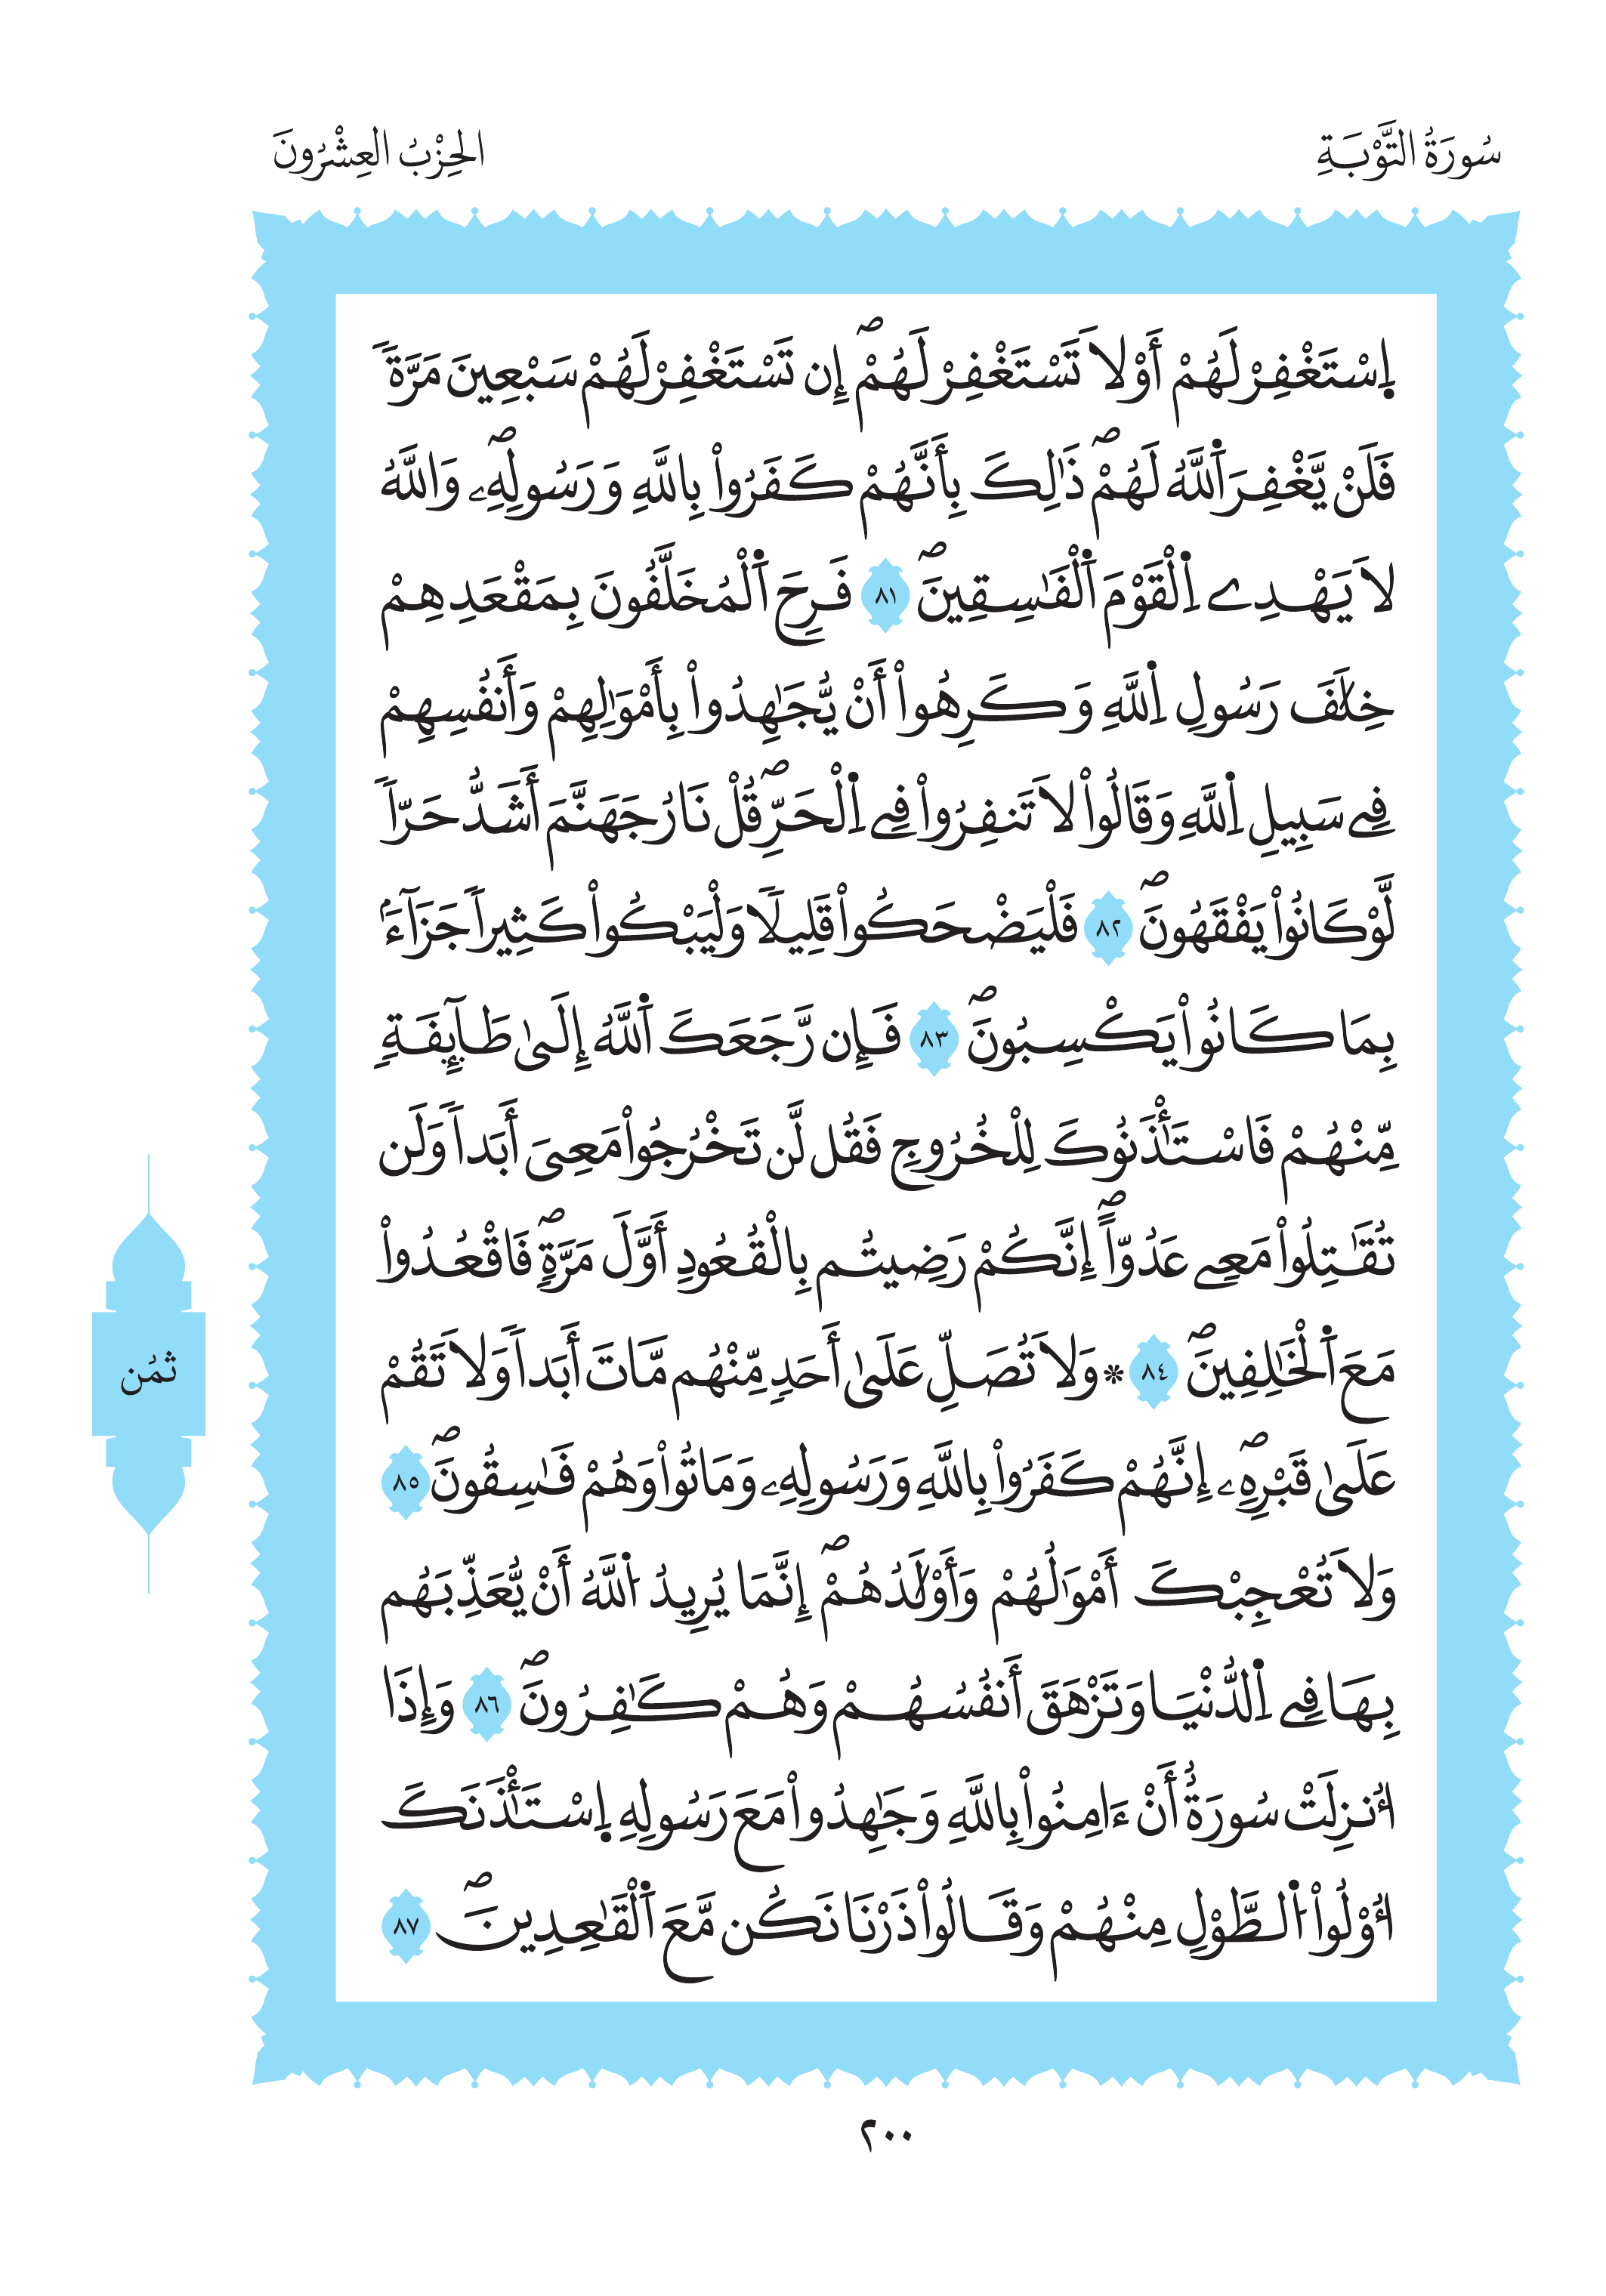 سُورَةُ التَّوْبَةِ
الحِزْبُ العِشْرُونَ
اِ۪سْتَغْفِرْ لَهُمْ أَوْ لَا تَسْتَغْفِرْ لَهُمْۖ إِن تَسْتَغْفِرْ لَهُمْ سَبْعِينَ مَرَّةٗ
فَلَنْ يَّغْفِرَ اَ۬للَّهُ لَهُمْۖ ذَٰلِكَ بِأَنَّهُمْ كَفَرُواْ بِاللَّهِ وَرَسُولِهِۦۖ وَاللَّهُ
لَا يَهْدِے اِ۬لْقَوْمَ اَ۬لْفَٰسِقِينَۖ ٨١ فَرِحَ اَ۬لْمُخَلَّفُونَ بِمَقْعَدِهِمْ
خِلَٰفَ رَسُولِ اِ۬للَّهِ وَكَرِهُواْ أَنْ يُّجَٰهِدُواْ بِأَمْوَٰلِهِمْ وَأَنفُسِهِمْ
فِے سَبِيلِ اِ۬للَّهِ وَقَالُواْ لَا تَنفِرُواْ فِے اِ۬لْحَرِّۖ قُلْ نَارُ جَهَنَّمَ أَشَدُّ حَرّاٗ
لَّوْ كَانُواْ يَفْقَهُونَۖ ٨٢ فَلْيَضْحَكُواْ قَلِيلاٗ وَلْيَبْكُواْ كَثِيراٗ جَزَآءَۢ
بِمَا كَانُواْ يَكْسِبُونَۖ ٨٣ فَإِن رَّجَعَكَ اَ۬للَّهُ إِلَىٰ طَآئِفَةٖ
مِّنْهُمْ فَاسْتَـْٔذَنُوكَ لِلْخُرُوجِ فَقُل لَّن تَخْرُجُواْ مَعِىَ أَبَداٗ وَلَن
تُقَٰتِلُواْ مَعِے عَدُوّاًۖ إِنَّكُمْ رَضِيتُم بِالْقُعُودِ أَوَّلَ مَرَّةٖۖ فَاقْعُدُواْ
مَعَ اَ۬لْخَٰلِفِينَۖ ٨٤ * وَلَا تُصَلِّ عَلَىٰ أَحَدٖ مِّنْهُم مَّاتَ أَبَداٗ وَلَا تَقُمْ
عَلَىٰ قَبْرِهِۦۖ إِنَّهُمْ كَفَرُواْ بِاللَّهِ وَرَسُولِهِۦ وَمَاتُواْ وَهُمْ فَٰسِقُونَۖ ٨٥
وَلَا تُعْجِبْكَ أَمْوَٰلُهُمْ وَأَوْلَٰدُهُمْۖ إِنَّمَا يُرِيدُ اُ۬للَّهُ أَنْ يُّعَذِّبَهُم
بِهَا فِے اِ۬لدُّنْيَا وَتَزْهَقَ أَنفُسُهُمْ وَهُمْ كَٰفِرُونَۖ ٨٦ وَإِذَا
أُنزِلَتْ سُورَةٌ أَنْ ءَامِنُواْ بِاللَّهِ وَجَٰهِدُواْ مَعَ رَسُولِهِ اِ۪سْتَـْٔذَنَكَ
أُوْلُواْ اُ۬لطَّوْلِ مِنْهُمْ وَقَالُواْ ذَرْنَا نَكُن مَّعَ اَ۬لْقَٰعِدِينَۖ ٨٧
ثمُن
٢٠٠